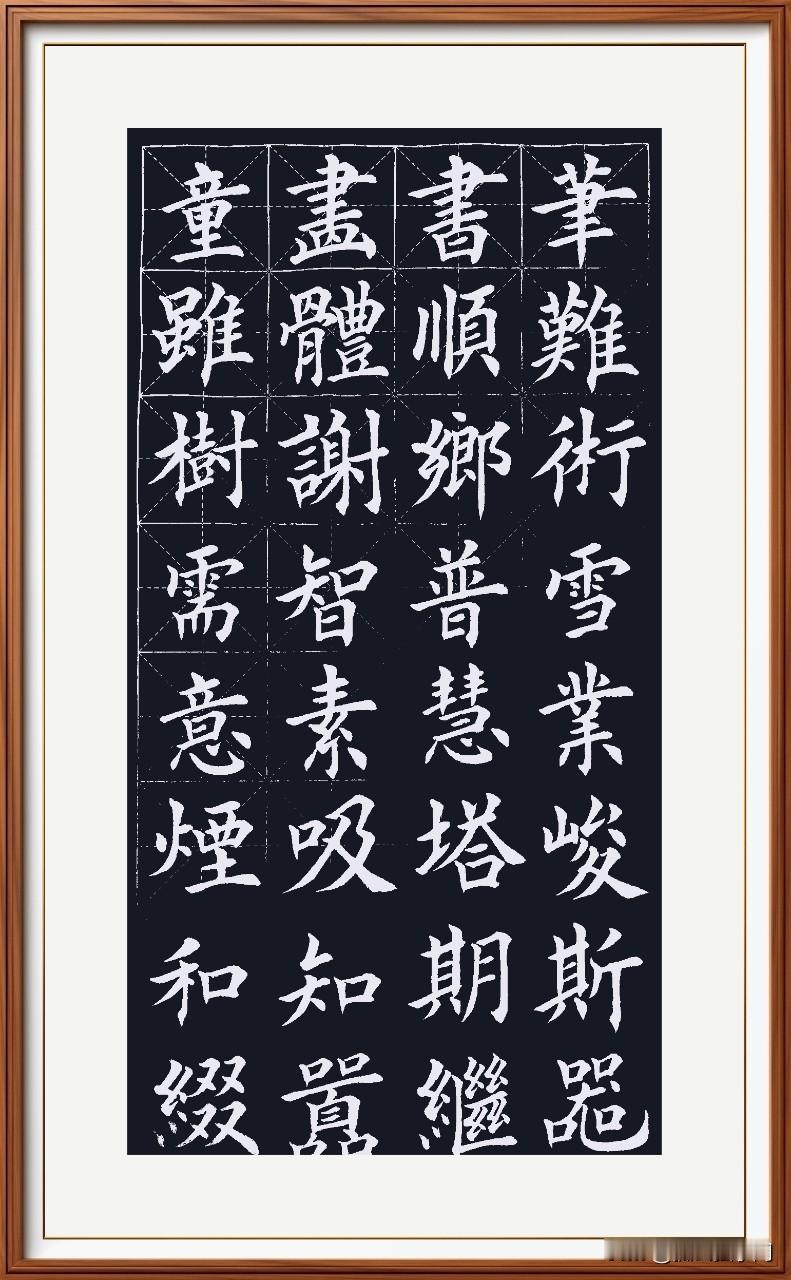 筆難術雪業峻斯
書順鄉普慧塔期繼
畫體謝智素吸知囂
童雖樹需意煙和綴